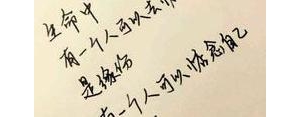 生命中
有一个人可以去
是缘份
有一个人可以恬愈自己